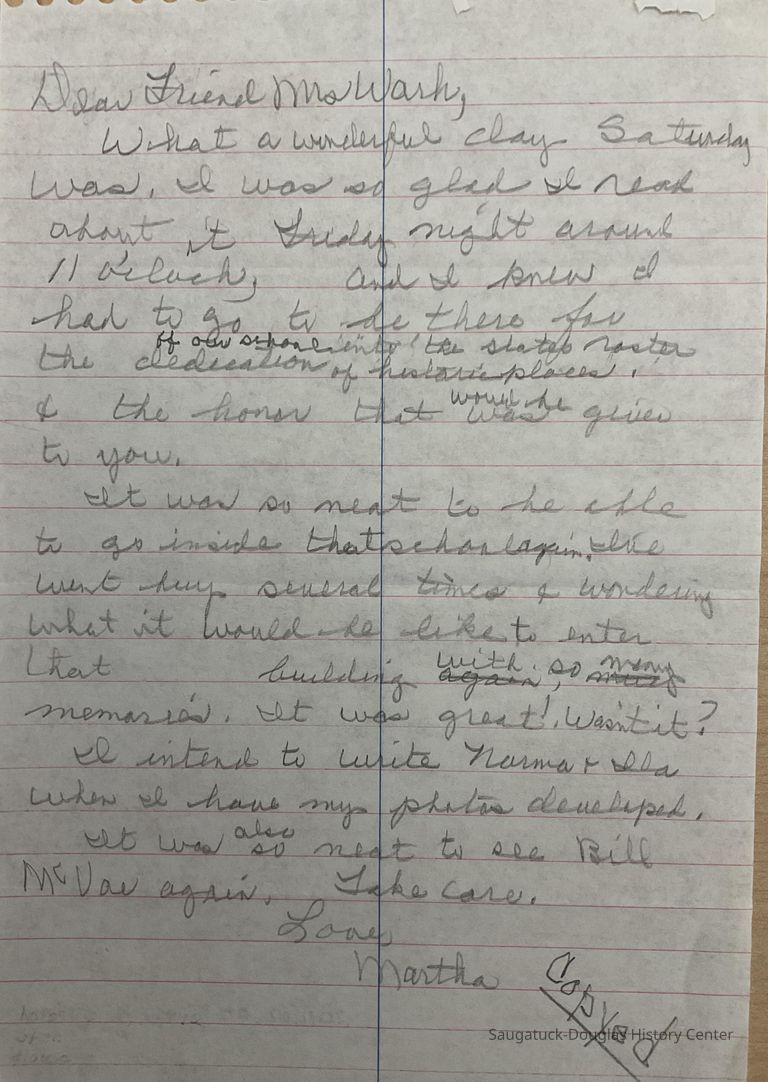 Dear Friend Mrs Wark,
What a wonderful day Saturday
was. I was so glad I read
about it Friday night around
11 o'clock, and I knew I
had to go to be there for
of our school into the states roster
the dedication of historic places.
would be
& the honor that was given
to you.
It was so neat to be able
to go inside that school again. I've
went buy several times & wondering
what it would be like to enter
with so many
that building again,
memories. It was great! Wasn't it?
I intend to write Norma & Ila
when I have my photos developed.
also
It was so neat to see Bill
McVae again. Take care.
Love
Martha
Copyed
Saugatuck-Douglas History Center